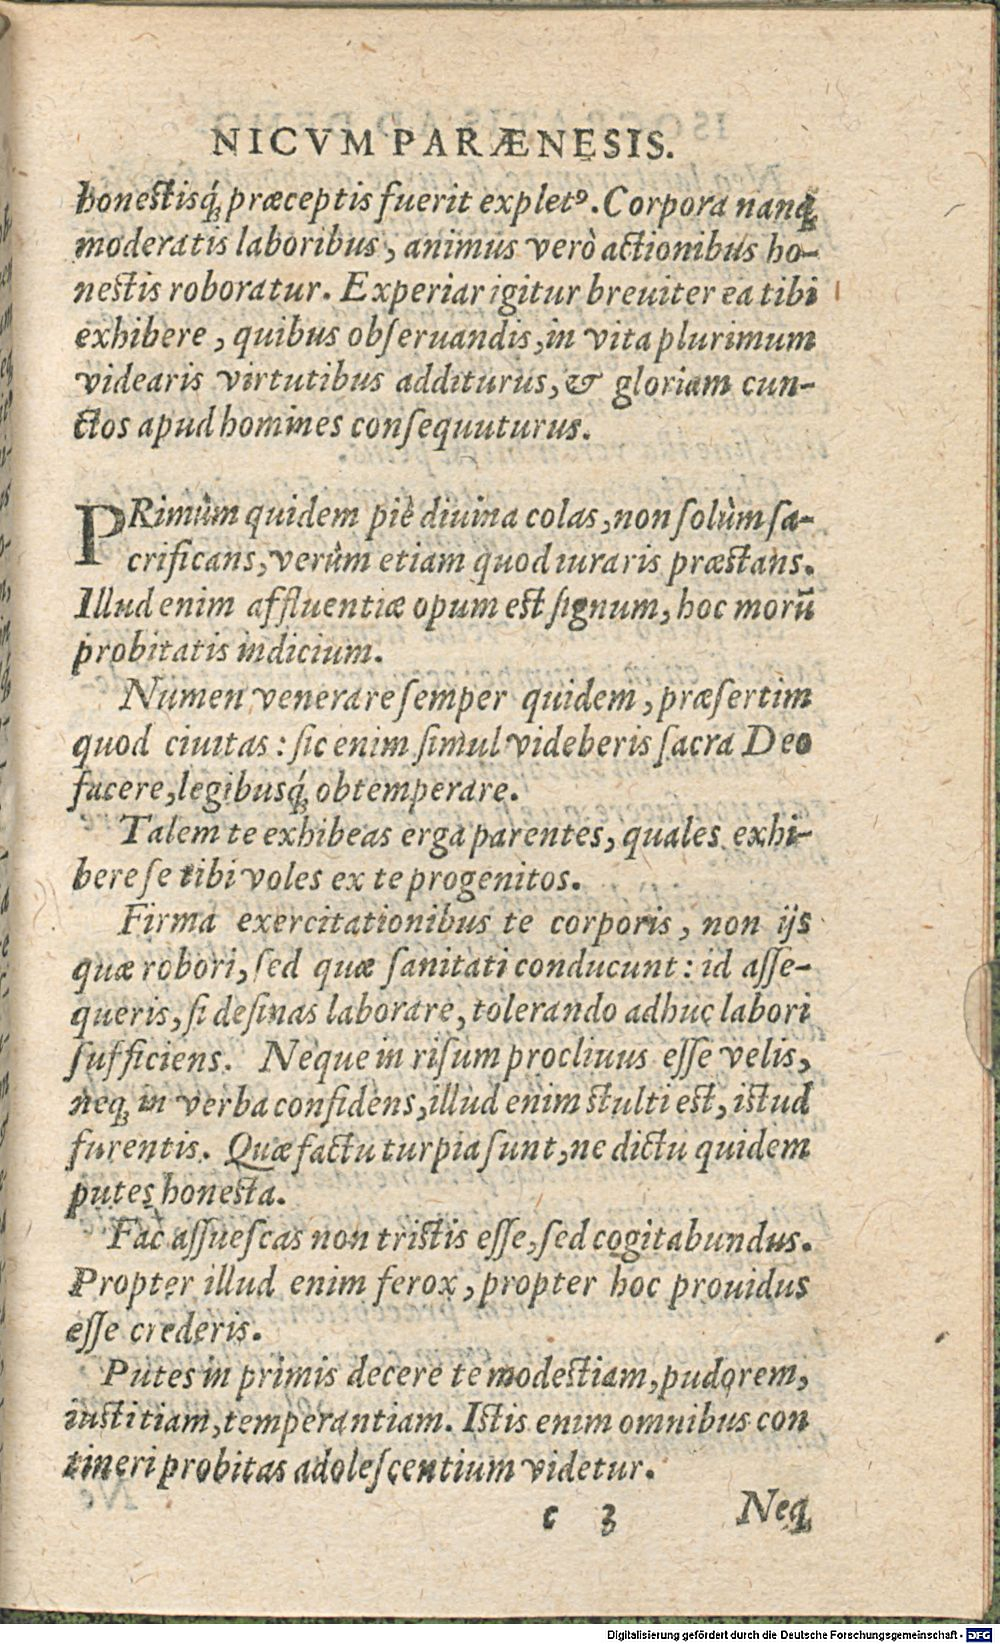 NICVM PARÆNESIS.
honestisq́ꝫ præceptis fuerit expletꝰ. Corpora nanqꝫ
moderatis laboribus, animus verò actionibus ho-
nestis roboratur. Experiar igitur breuiter ea tibi
exhibere, quibus obſeruandis, in vita plurimum
videaris virtutibus additurus, & gloriam cun-
ctos apud homines conſequuturus.
PRimùm quidem piè diuina colas, non ſolùm ſa-
crificans, verùm etiam quod iuraris præstans.
Illud enim affluentiæ opum est ſignum, hoc morū
probitatis indicium.
Numen venerare ſemper quidem, præſertim
quod ciuitas: ſic enim ſimul videberis ſacra Deo
facere, legibusq́ꝫ obtemperare.
Talem te exhibeas erga parentes, quales exhi-
bere ſe tibi voles ex te progenitos.
Firma exercitationibus te corporis, non ijs
quæ robori, ſed quæ ſanitati conducunt: id aſſe-
queris, ſi deſinas laborare, tolerando adhuc labori
ſufficiens. Neque in riſum procliuus eſſe velis,
neqꝫ in verba confidens, illud enim stulti est, istud
furentis. Quæ factu turpia ſunt, ne dictu quidem
putes honesta.
Fac aſſueſcas non tristis eſſe, ſed cogitabundus.
Propter illud enim ferox, propter hoc prouidus
eſſe crederis.
Putes in primis decere te modestiam, pudorem,
iustitiam, temperantiam. Istis enim omnibus con
tineri probitas adoleſcentium videtur.
c 3 Neqꝫ
Digitalisierung gefördert durch die Deutsche Forschungsgemeinschaft - DFG